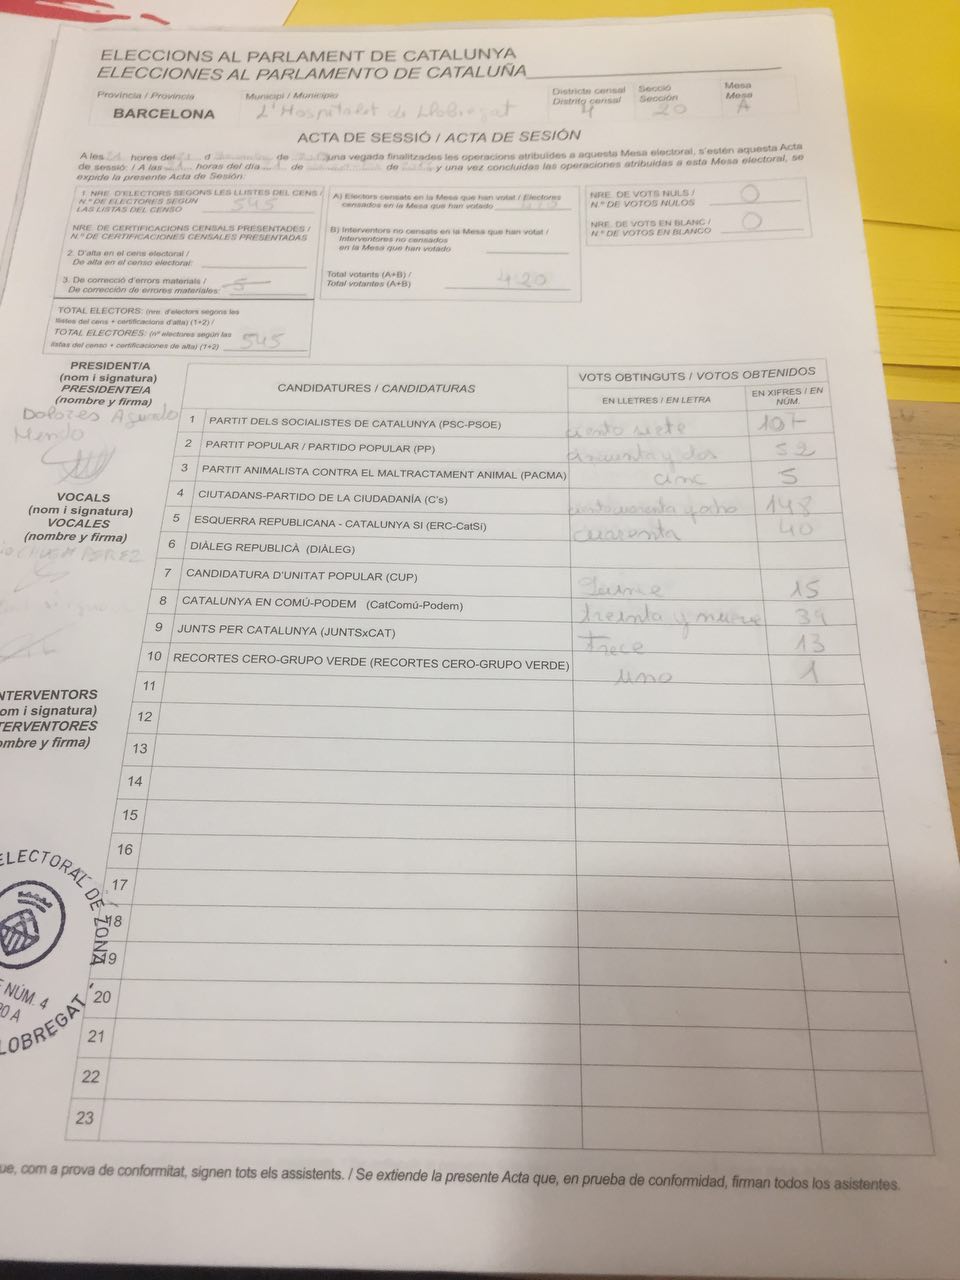 ELECCIONS AL PARLAMENT DE CATALUNYA
ELECCIONES AL PARLAMENTO DE CATALUÑA
Província / Provincia
BARCELONA
Municipi / Municipio
L'Hospitalet de Llobregat
Districte censal
Distrito censal
4
Secció
Sección
20
Mesa
Mesa
A
ACTA DE SESSIÓ / ACTA DE SESIÓN
A les 21 hores del 21 d de una vegada finalitzades les operacions atribuïdes a aquesta Mesa electoral, s'estén aquesta Acta
de sessió: / A las horas del día de de y una vez concluidas las operaciones atribuidas a esta Mesa electoral, se
expide la presente Acta de Sesión:
1. NRE. D'ELECTORS SEGONS LES LLISTES DEL CENS /
N.º DE ELECTORES SEGÚN
LAS LISTAS DEL CENSO 545
NRE. DE CERTIFICACIONS CENSALS PRESENTADES /
N.º DE CERTIFICACIONES CENSALES PRESENTADAS
2. D'alta en el cens electoral /
De alta en el censo electoral:
3. De correcció d'errors materials /
De corrección de errores materiales: 5
TOTAL ELECTORS: (nre. d'electors segons les
llistes del cens + certificacions d'alta) (1+2) /
TOTAL ELECTORES: (nº electores según las
listas del censo + certificaciones de alta) (1+2) 545
A) Electors censats en la Mesa que han votat / Electores
censados en la Mesa que han votado 420
B) Interventors no censats en la Mesa que han votat /
Interventores no censados
en la Mesa que han votado
Total votants (A+B) /
Total votantes (A+B) 420
NRE. DE VOTS NULS /
N.º DE VOTOS NULOS 0
NRE. DE VOTS EN BLANC /
N.º DE VOTOS EN BLANCO 0
PRESIDENT/A
(nom i signatura)
PRESIDENTE/A
(nombre y firma)
Dolores Agundo
Mendo
VOCALS
(nom i signatura)
VOCALES
(nombre y firma)
PEREZ
NTERVENTORS
om i signatura)
TERVENTORES
ombre y firma)
CANDIDATURES / CANDIDATURAS
VOTS OBTINGUTS / VOTOS OBTENIDOS
EN LLETRES / EN LETRA
EN XIFRES / EN
NÚM.
1 PARTIT DELS SOCIALISTES DE CATALUNYA (PSC-PSOE) ciento siete 107
2 PARTIT POPULAR / PARTIDO POPULAR (PP) cincuenta y dos 52
3 PARTIT ANIMALISTA CONTRA EL MALTRACTAMENT ANIMAL (PACMA) cinc 5
4 CIUTADANS-PARTIDO DE LA CIUDADANÍA (C's) ciento cuarenta y ocho 148
5 ESQUERRA REPUBLICANA - CATALUNYA SI (ERC-CatSí) cuarenta 40
6 DIÀLEG REPUBLICÀ (DIÀLEG)
7 CANDIDATURA D'UNITAT POPULAR (CUP) 15
8 CATALUNYA EN COMÚ-PODEM (CatComú-Podem) treinta y nueve 39
9 JUNTS PER CATALUNYA (JUNTSxCAT) Trece 13
10 RECORTES CERO-GRUPO VERDE (RECORTES CERO-GRUPO VERDE) uno 1
11
12
13
14
15
16
17
18
19
20
21
22
23
ELECTORAL DE ZONA
NÚM. 4
20 A
LOBREGAT
ue, com a prova de conformitat, signen tots els assistents. / Se extiende la presente Acta que, en prueba de conformidad, firman todos los asistentes.